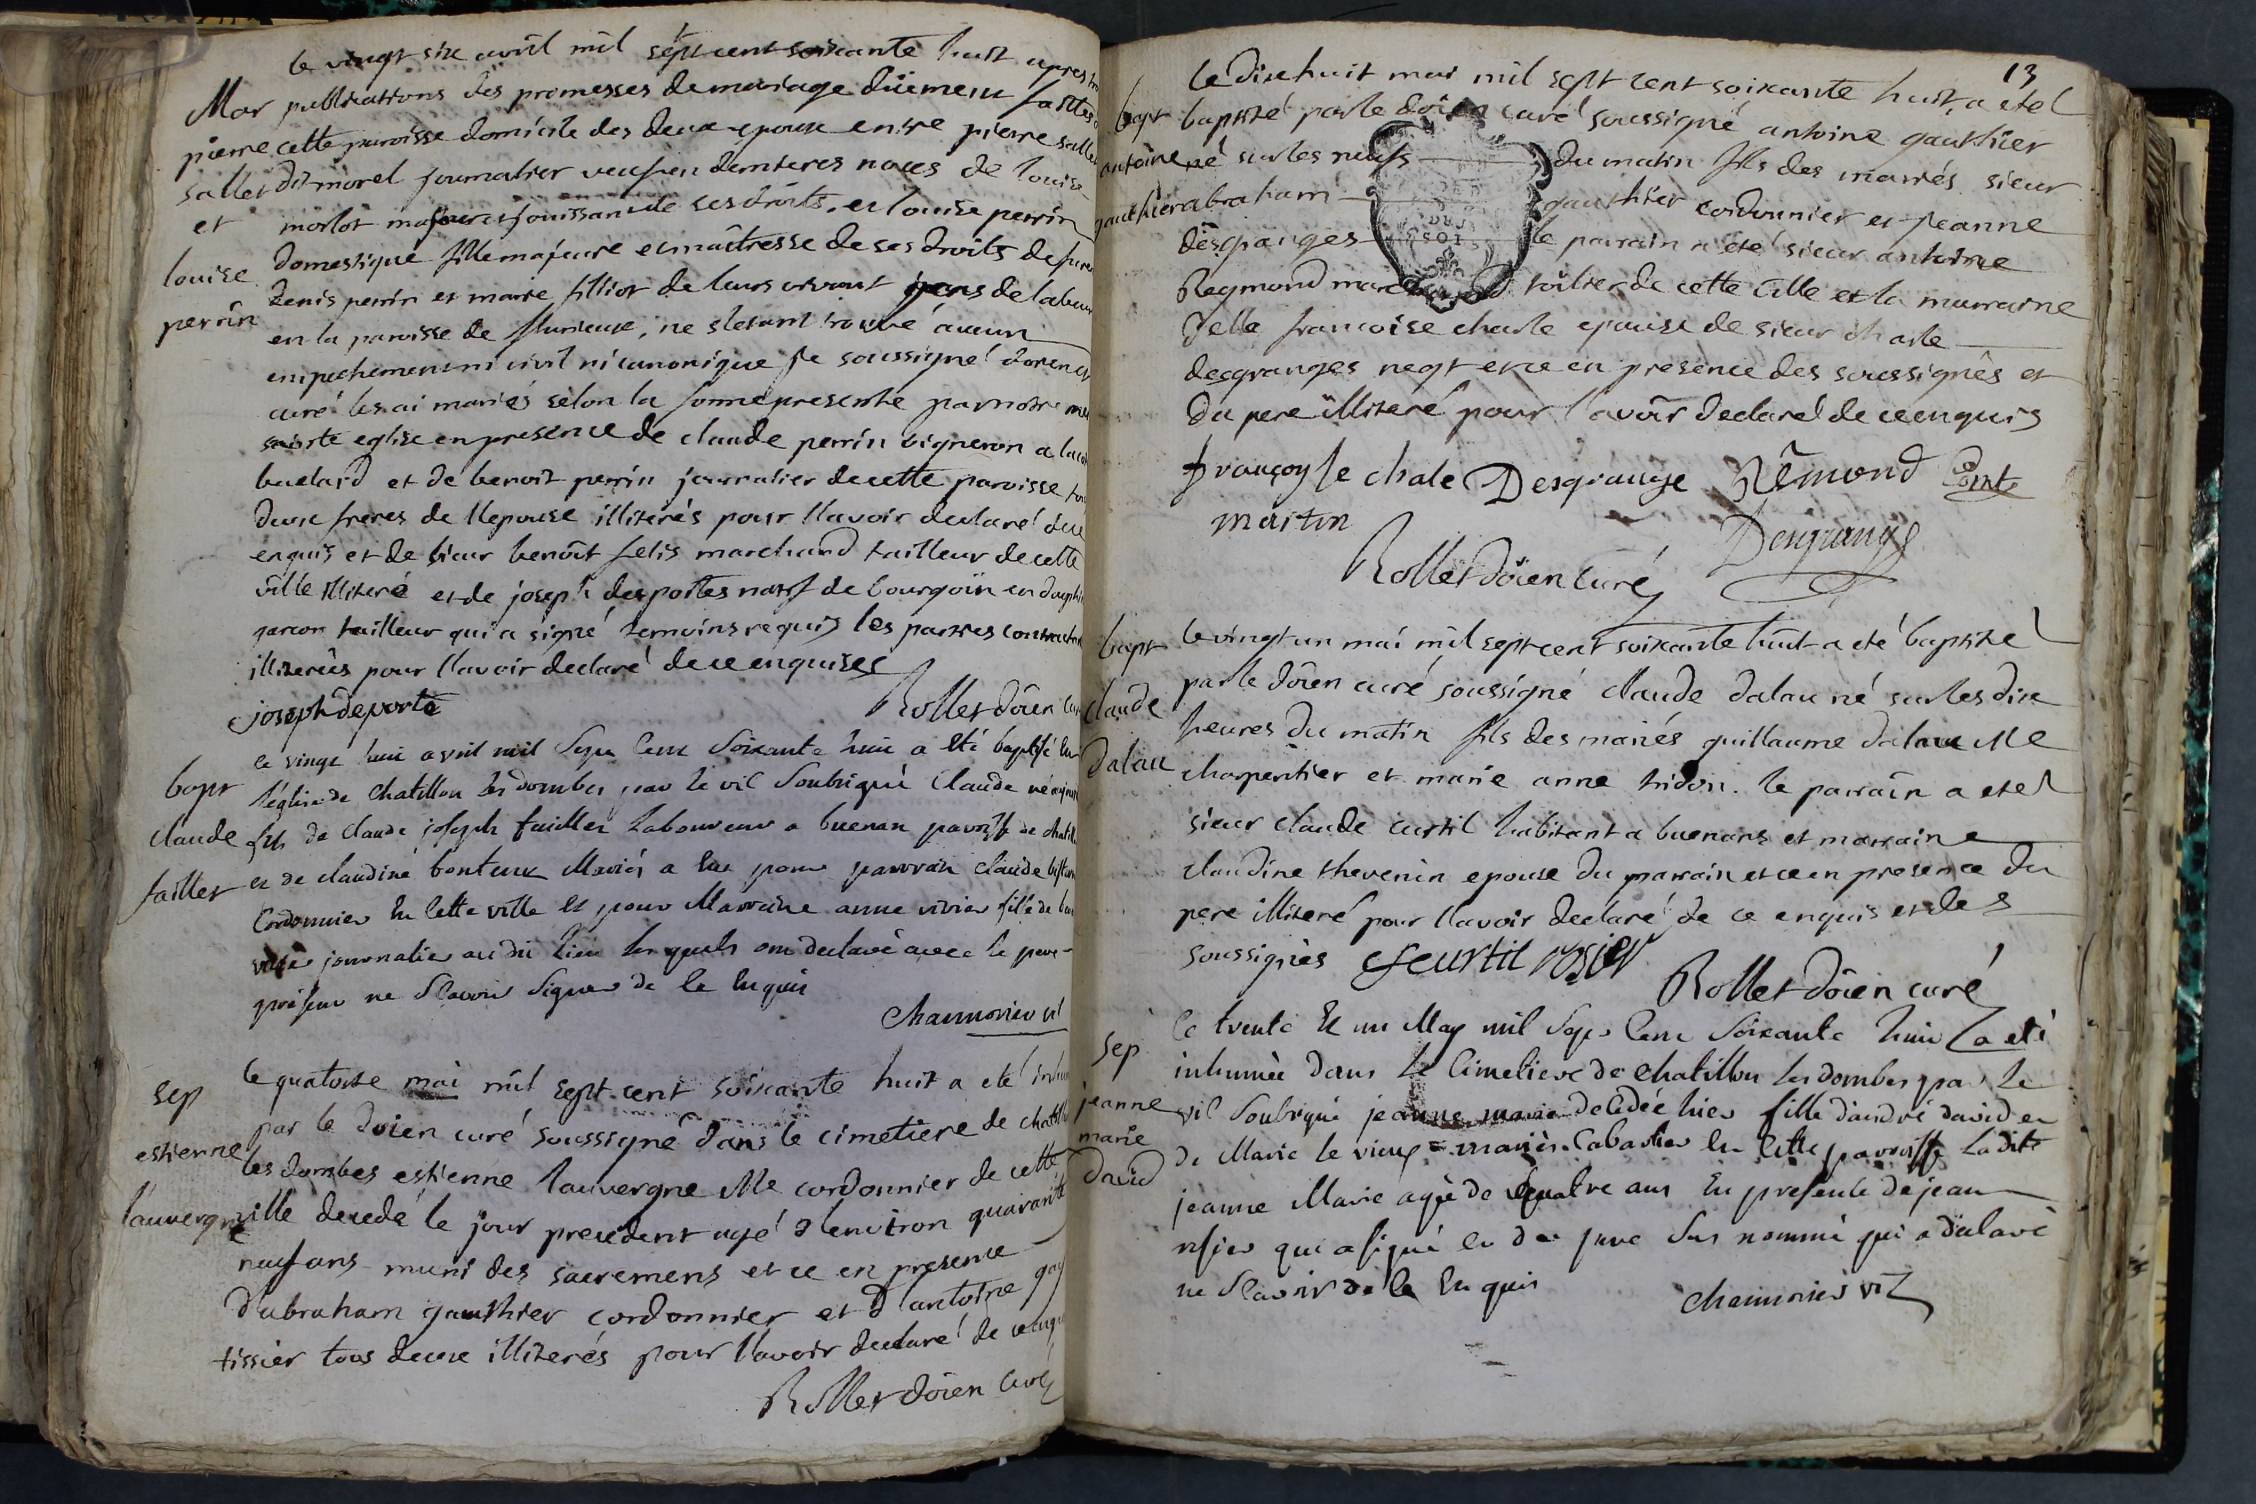 le vingt six avril mil sept cent soixante huit apres trois
Mar publications des promesses de mariage düement faittes
pierre cette paroisse domicile des deux epoux entre pierre sallet
sallet dit morel journalier veuf en dernieres noces de louise
et morlot majeur et jouissant de ses droits, et louise perrin
domestique fille majeure et maitresse de ses droits de
louise denis perrin et marie filliot de leurs vivant gens de labeur
perrin en la paroisse de fleurieux, ne s'etant trouvé aucun
empechement ni civil ni canonique je soussigné doien et
curé les ai mariés selon la forme presente par notre
sainte eglise en presence de claude perrin vigneron a
buelard et de benoit perrin journalier de cette paroisse tous
deux freres de l'epouse illiterés pour l'avoir declaré de ce
enquis et de sieur benoit felis marchand tailleur de cette
ville illiteré et de joseph desportes natif de bourgoin en dauphiné
garcon tailleur qui a signé temoins requis les parties contractantes
illiterées pour l'avoir declaré de ce enquises
joseph deporte Rollet doïen curé
le vingt huit avril mil sept cent soixante huit a été baptisé en
bapt l'eglise de chatillon les dombes par le vic soubsigné claude né
claude fils de claude joseph faillet laboureur a buenan paroisse de chatillon
faillet et de claudine bontemx mariés a eu pour parrain claude
cordonnier en cette ville et pour marraine anne vivier fille de
vivier journalier au dit lieu lesquels ont declaré avec le pere
présent ne sçavoir signer de ce enquis
chamonier vic
sep le quatorze mai mil sept cent soixante huit a eté inhumé
par le doien curé soussigné dans le cimetiere de chatillon
estienne les dombes estienne lauvergne Me cordonnier de cette
lauvergne ville decedé le jour precedent agé d'environ quarante
neuf ans muni des sacremens et ce en presence
d'abraham gauthier cordonnier et d'antoine gay
tissier tous deux illiterés pour l'avoir declaré de ce enquis
Rollet doïen curé
13
le dixe huit mai mil sept cent soixante huit a eté
bapt baptisé par le doïen curé soussigné antoine gauthier
antoine né sur les neufs du matin fils des mariés sieur
gauthier abraham gauthier cordonnier et jeanne
desgranges le parrain a été sieur antoine
Reymond marchand toilier de cette ville et la marraine
delle francoise charle epouse de sieur charle
desgranges negt et ce en presence des soussignés et
du pere illiteré pour l'avoir declaré de ce enquis
françoyse chale Desgrange Rémond Comte
martin Desgrange
Rollet doïen curé
bapt le vingt un mai mil sept cent soixante huit a eté baptisé
par le doïen curé soussigné claude dalau né sur les dix
claude heures du matin fils des mariés guillaume dalau Me
dalau charpentier et marie anne tridon. le parrain a eté
sieur claude curtil habitant a buenans et marraine
claudine thevenin epouse du parrain et ce en presence du
pere illiteré pour l'avoir declaré de ce enquis et des
soussignés C curtil rosier
Rollet doïen curé
sep Le trente et un May mil sept cent soixante huit a eté
inhumée dans le cimetiere de chatillon les dombes par le
jeanne vic soubsigné jeanne marie decedée hier fille d'andré david et
marie de Marie le vieux mariés cabartier en cette parroisse ladite
david jeanne Marie agée de quatre ans en presence de jean
rosier qui a signé et du pere sus nommé qui a declaré
ne sçavoir de ce enquis
chamonier vic